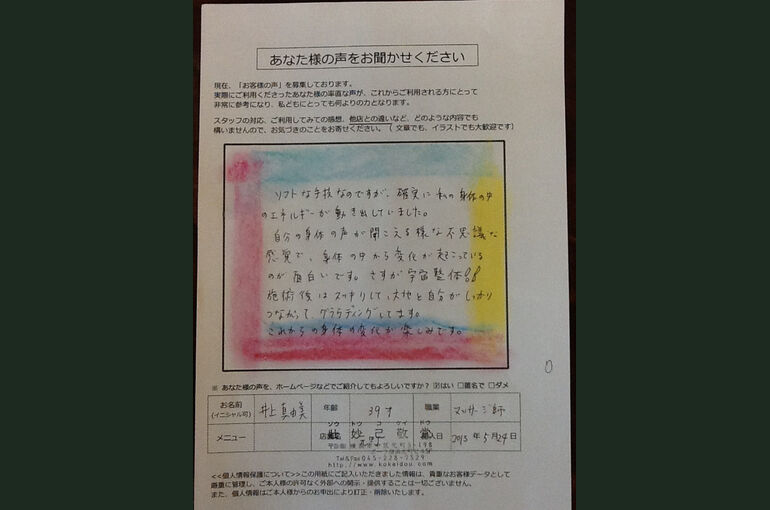 あなた様の声をお聞かせください
現在、「お客様の声」を募集しております。
実際にご利用くださったあなた様の率直な声が、これからご利用される方にとって
非常に参考になり、私どもにとっても何よりの力となります。
スタッフの対応、ご利用してみての感想、他店との違いなど、どのような内容でも
構いませんので、お気づきのことをお寄せください。（ 文章でも、イラストでも大歓迎です）
ソフトな手技なのですが、確実に私の身体の中
のエネルギーが動き出していました。
自分の身体の声が聞こえる様な不思議な
感覚で、身体の中から変化が起こっている
のが面白いです。さすが宇宙整体!!
施術後はスッキリして、大地と自分がしっかり
つながって、グラウディングしてます。
これからの身体の変化が楽しみです。
※ あなた様の声を、ホームページなどでご紹介してもよろしいですか？ ☑はい □匿名で □ダメ
お名前 (イニシャル可) 井上真由美 年齢 39才 職業 マッサージ師
メニュー 店舗名 妙 己 敬 堂 記入日 2013年5月24日
ソウ トウ コ ケイ ドウ
Tel&Fax 045-228-7529
http://www.kokeidou.com
<<個人情報保護について>> この用紙にご記入いただきました情報は、貴重なお客様データとして
厳重に管理し、ご本人様の許可なく外部への開示・提供することは一切ございません。
また、個人情報はご本人様からのお申出により訂正・削除いたします。